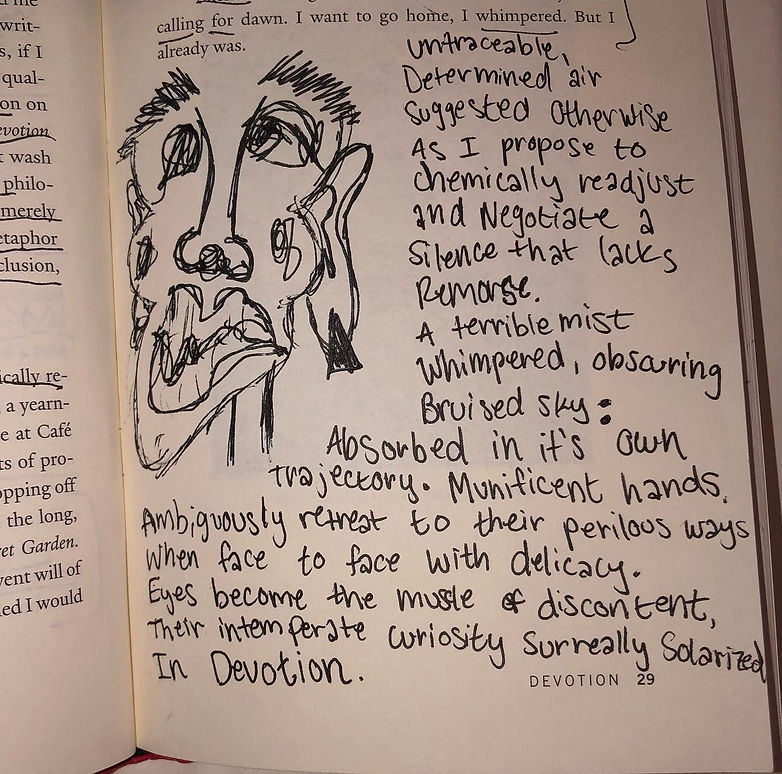 writ-
s, if I
qual-
on on
evotion
wash
philo-
merely
etaphor
clusion,
ically re-
a yearn-
e at Café
ts of pro-
opping off
the long,
ret Garden.
vent will of
led I would
calling for dawn. I want to go home, I whimpered. But I
already was.
untraceable,
Determined air
suggested otherwise
As I propose to
chemically readjust
and Negotiate a
Silence that lacks
Remorse.
A terrible mist
Whimpered, obscuring
Bruised sky:
Absorbed in it's own
trajectory. Munificent hands,
Ambiguously retreat to their perilous ways
When face to face with delicacy.
Eyes become the muscle of discontent,
Their intemperate curiosity Surreally Solarized
In Devotion.
DEVOTION 29